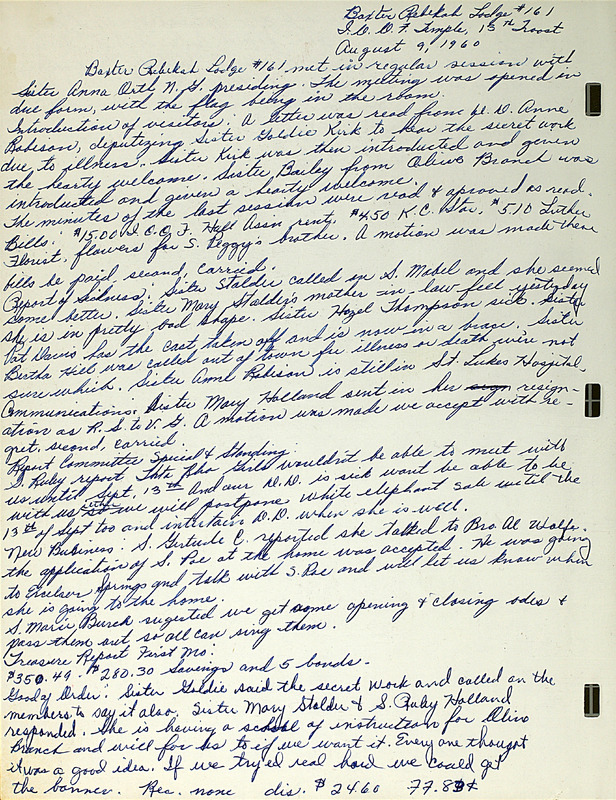 Baxter Rebekah Lodge #161
I.O.O.F. Temple, 13th Troost
August 9, 1960
Baxter Rebekah Lodge #161 met in regular session with
Sister Anna Orth N.G. presiding. The meeting was opened in
due form, with the flag being in the room.
Introduction of visitors: A letter was read from D.D. Anne
Robeson, deputizing Sister Goldie Kirk to hear the secret work
due to illness. Sister Kirk was then introduced and given
the hearty welcome. Sister, Bailey from Olive Branch was
introduced and given a hearty welcome.
The minutes of the last session were read & aproved as read.
Bills: $15.00 I.O.O.F. Hall Assn rent, $4.50 K.C. Star, $5.10 Luther
Florist, flowers for S. Peggy's brother. A motion was made these
bills be paid, second, carried.
Report of Sickness: Sister Stalder called on S. Mabel and she seemed
some better. Sister Mary Stalder's mother-in-law feel yesterday
she is in pretty bad shape. Sister Hazel Thompson sick. Sister
Pat Davis has the cast taken off and is now in a brace. Sister
Bertha Hill was called out of town for illness or death were not
sure which. Sister Anne Robeson is still in St. Lukes Hospital.
Communications: Sister Mary Holland sent in her resign-
ation as R.S. to V.G. A motion was made we accept with re-
gret, second, carried.
Report Committee Special & Standing:
S. Ruby report Theta Rho Girls wouldn't be able to meet with
us until Sept. 13th and our D.D. is sick wont be able to be
with us either so we will postpone white elephant sale until the
13th of Sept too and intertain D.D. when she is well.
New Business: S. Gertrude C. reported she talked to Bro. Al Wolfe.
the application of S. Poe at the home was accepted. He was going
to Excelser Springs and talk with S. Poe and will let us know when
she is going to the home.
S. Marie Burck sugested we get some opening & closing odes &
pass them out so all can sing them.
Treasure Report First Mo:
$350.49. $280.30 Savings and 5 bonds.
Good of Order: Sister Goldie said the secret work and called on the
members to say it also. Sister Mary Stalder & S. Ruby Holland
responded. She is having a school of instruction for Olive
Branch and will for us to if we want it. Every one thought
it was a good idea. If we try'ed real hard we could get
the banner. Rec. none dis. $24.60